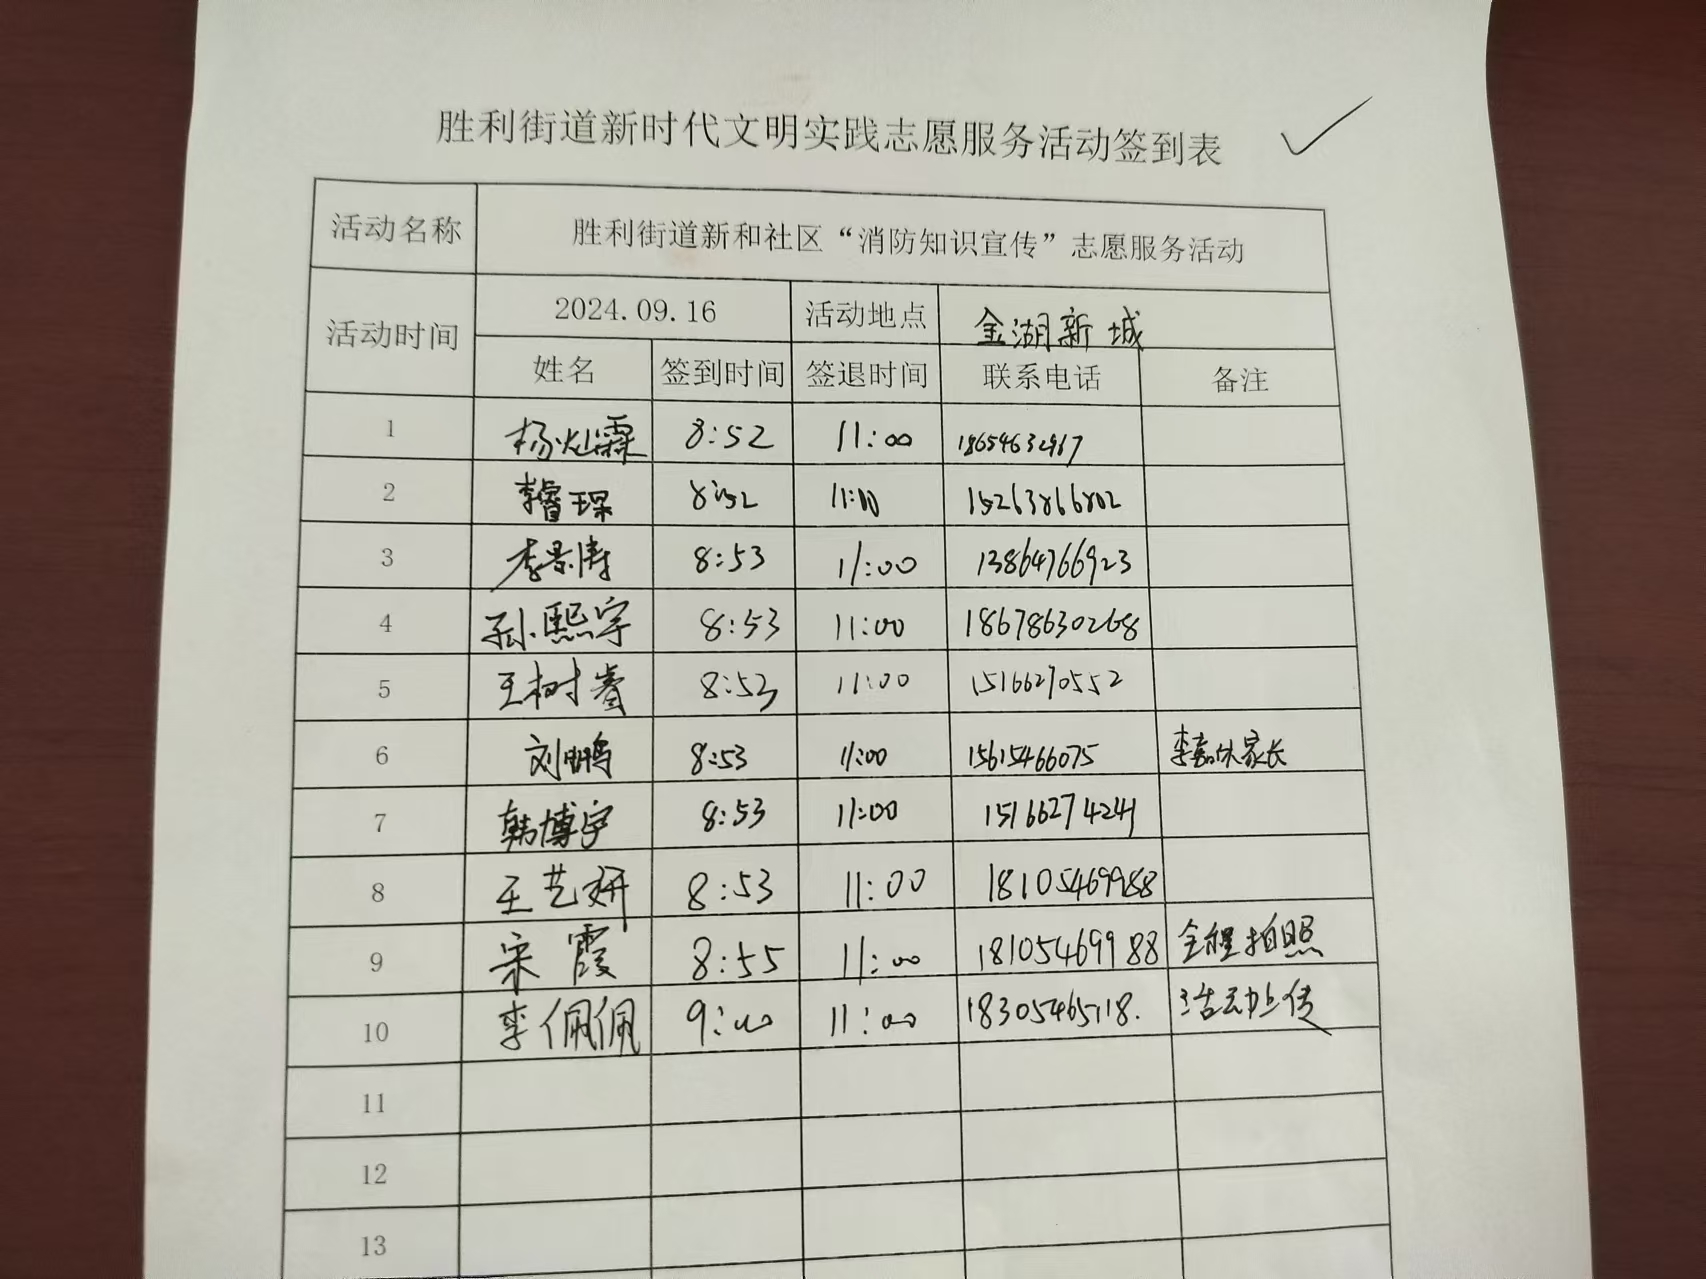 胜利街道新时代文明实践志愿服务活动签到表
活动名称 胜利街道新和社区“消防知识宣传”志愿服务活动
活动时间 2024.09.16 活动地点 金湖新城
姓名 签到时间 签退时间 联系电话 备注
1 杨灿霖 8:52 11:00
2 李睿琛 8:52 11:00 15263866802
3 李景涛 8:53 11:00 13864766923
4 孙熙宇 8:53 11:00 18678630268
5 王树睿 8:53 11:00 15166270552
6 刘鹏 8:53 11:00 15615466075 家长
7 韩博宇 8:53 11:00 15166274241
8 王艺妍 8:53 11:00 18105469988
9 宋霞 8:55 11:00 18105469988 全程拍照
10 李佩佩 9:00 11:00 活动上传
11
12
13